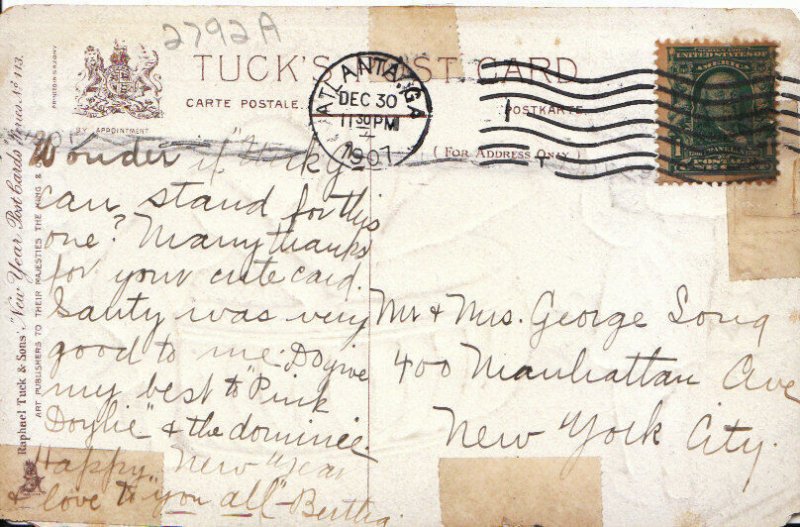 2792A
TUCK'S POST CARD
CARTE POSTALE.
POSTKARTE.
(FOR ADDRESS ONLY.)
BY APPOINTMENT
ATLANTA, GA
DEC 30
1130PM
1907
Raphael Tuck & Sons' "New Year" Post Cards Series No. 113.
ART PUBLISHERS TO THEIR MAJESTIES THE KING &
Wonder if "Nicky"
can stand for this
one? Many thanks
for your cute card.
Santy was very
good to me. Do give
my best to "Pink
Doylie" & the dominie.
Happy New Year
& love to "you all" - Bertha
Mr & Mrs. George Long
400 Manhattan Ave
New York City.